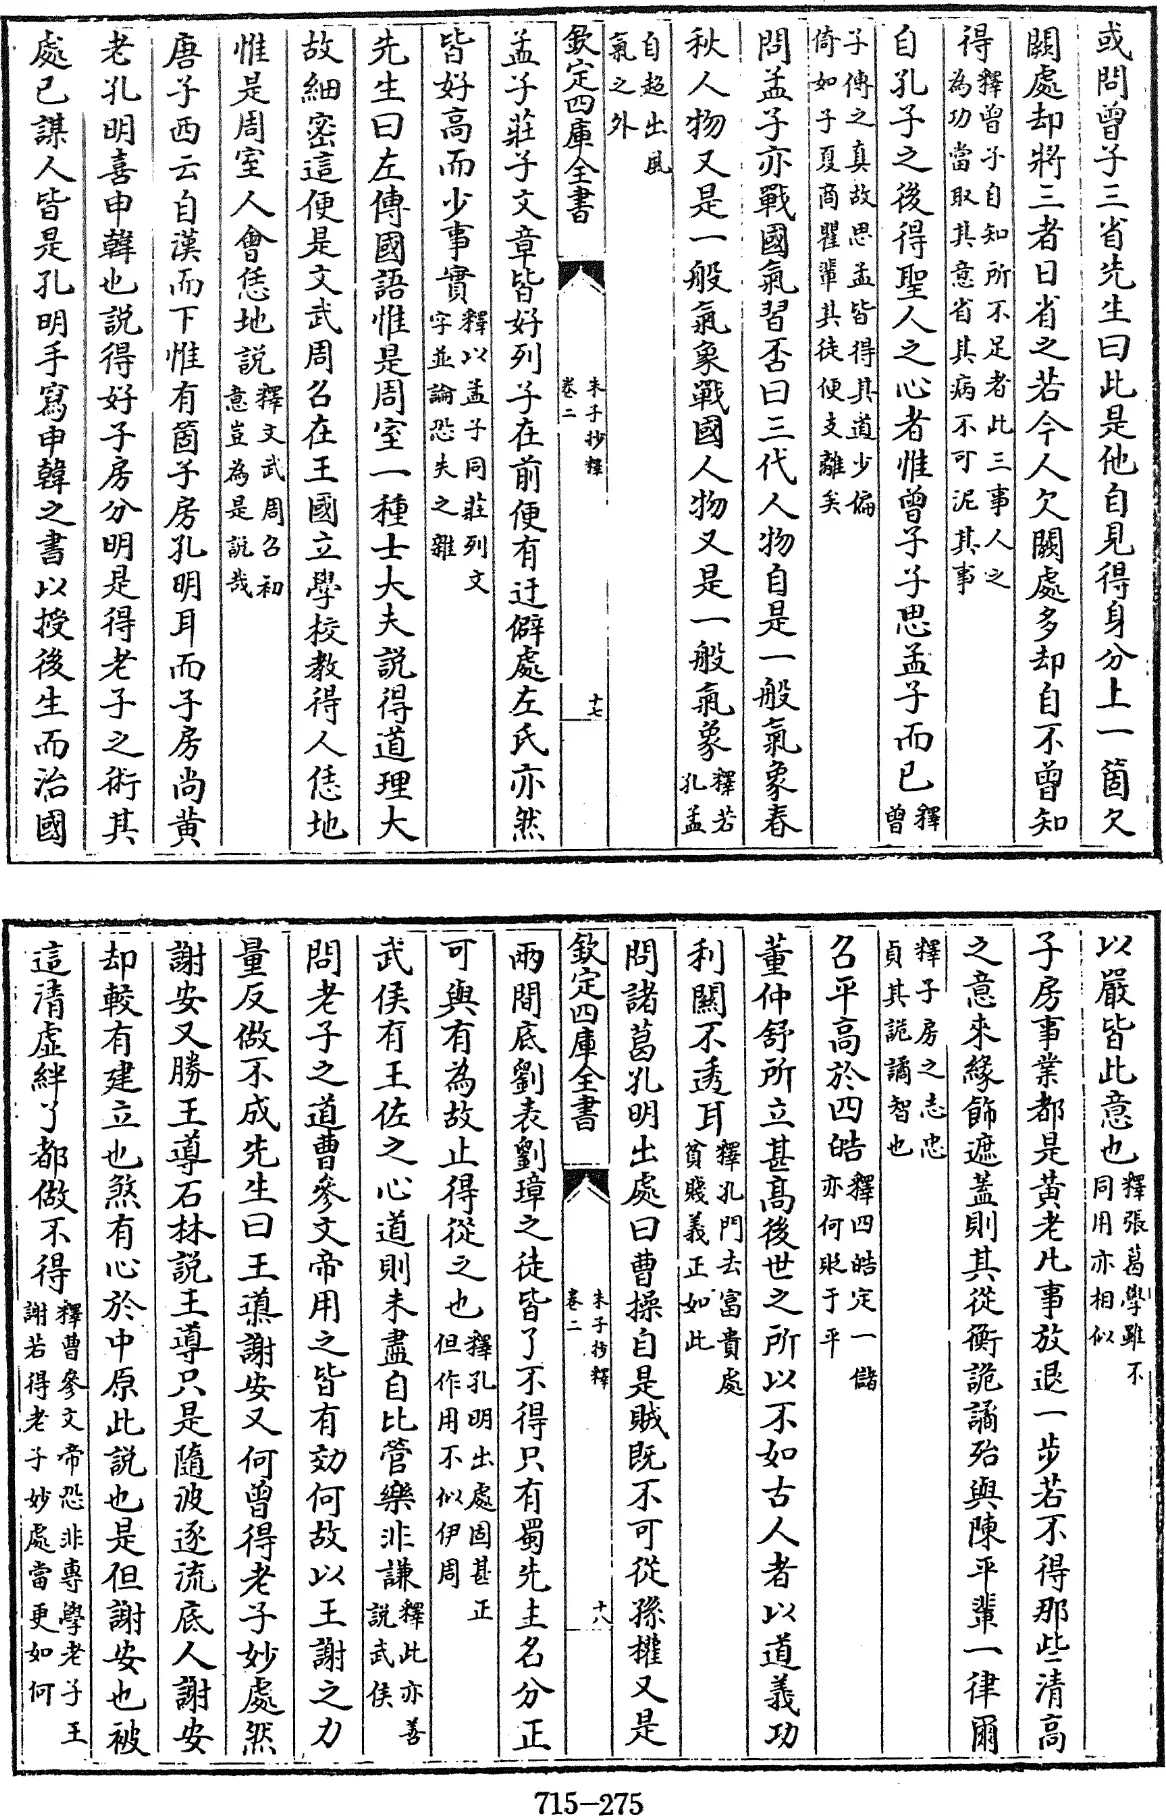 或問曾子三省先生曰此是他自見得身分上一箇欠
闕處却將三者日省之若今人欠闕處多却自不曾知
得釋曾子自知所不足者此三事人之為功當取其意省其病不可泥其事
自孔子之後得聖人之心者惟曾子子思孟子而已釋曾
子傳之真故思孟皆得其道少偏倚如子夏商瞿輩其徒便支離矣
問孟子亦戰國氣習否曰三代人物自是一般氣象春
秋人物又是一般氣象戰國人物又是一般氣象釋若孔孟
自超出風氣之外
欽定四庫全書 朱子抄釋 卷二 十七
孟子莊子文章皆好列子在前便有迂僻處左氏亦然
皆好高而少事實釋以孟子同莊列文字並論恐失之雜
先生曰左傳國語惟是周室一種士大夫説得道理大
故細密這便是文武周召在王國立學校教得人恁地
惟是周室人會恁地説釋文武周召初意豈為是説哉
唐子西云自漢而下惟有箇子房孔明耳而子房尚黄
老孔明喜申韓也説得好子房分明是得老子之術其
處已謀人皆是孔明手寫申韓之書以授後生而治國
以嚴皆此意也釋張葛學雖不同用亦相似
子房事業都是黄老凡事放退一步若不得那些清高
之意來緣飾遮蓋則其從衡詭譎殆與陳平輩一律爾
釋子房之志忠貞其詭譎智也
召平高於四皓釋四皓定一儲亦何貶于平
董仲舒所立甚高後世之所以不如古人者以道義功
利關不透耳釋孔門去富貴處貧賤義正如此
問諸葛孔明出處曰曹操自是賊既不可從孫權又是
欽定四庫全書 朱子抄釋 卷二 十八
兩間底劉表劉璋之徒皆了不得只有蜀先主名分正
可與有為故止得從之也釋孔明出處固甚正但作用不似伊周
武侯有王佐之心道則未盡自比管樂非謙釋此亦善説武侯
問老子之道曹參文帝用之皆有効何故以王謝之力
量反做不成先生曰王導謝安又何曾得老子妙處然
謝安又勝王導石林説王導只是隨波逐流底人謝安
却較有建立也煞有心於中原此説也是但謝安也被
這清虛絆了都做不得釋曹參文帝恐非專學老子王謝若得老子妙處當更如何
715-275